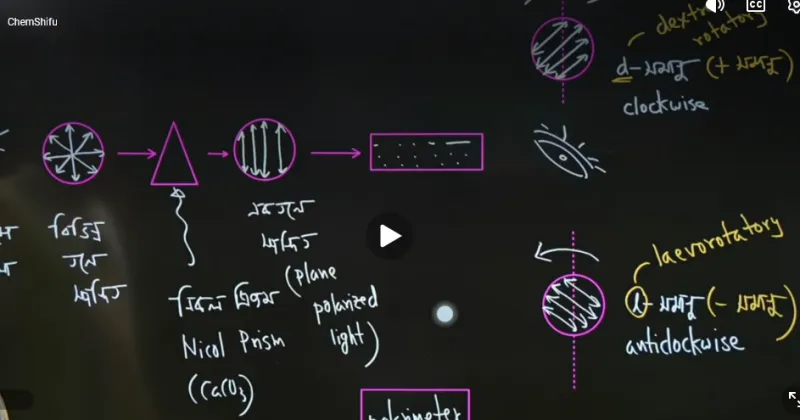 ChemShifu
dextro
rotatory
d-সমাণু (+ সমাণু)
clockwise
বিভিন্ন
তলে
একতলে
নিকল প্রিজম
Nicol Prism
(CaCO3)
(plane
polarized
light)
laevorotatory
l-সমাণু (- সমাণু)
anticlockwise
polarimeter